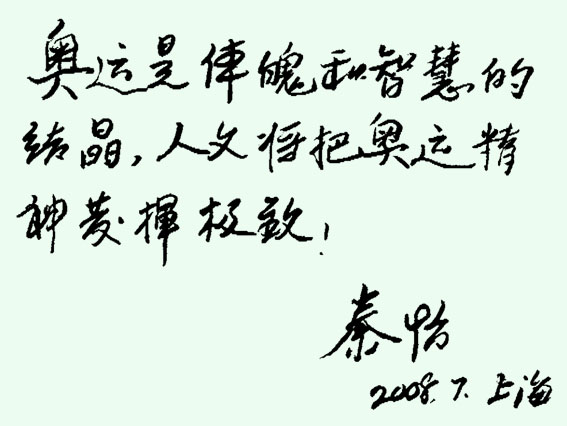 奥运是体魄和智慧的
结晶，人文将把奥运精
神发挥极致！
秦怡
2008.7.上海